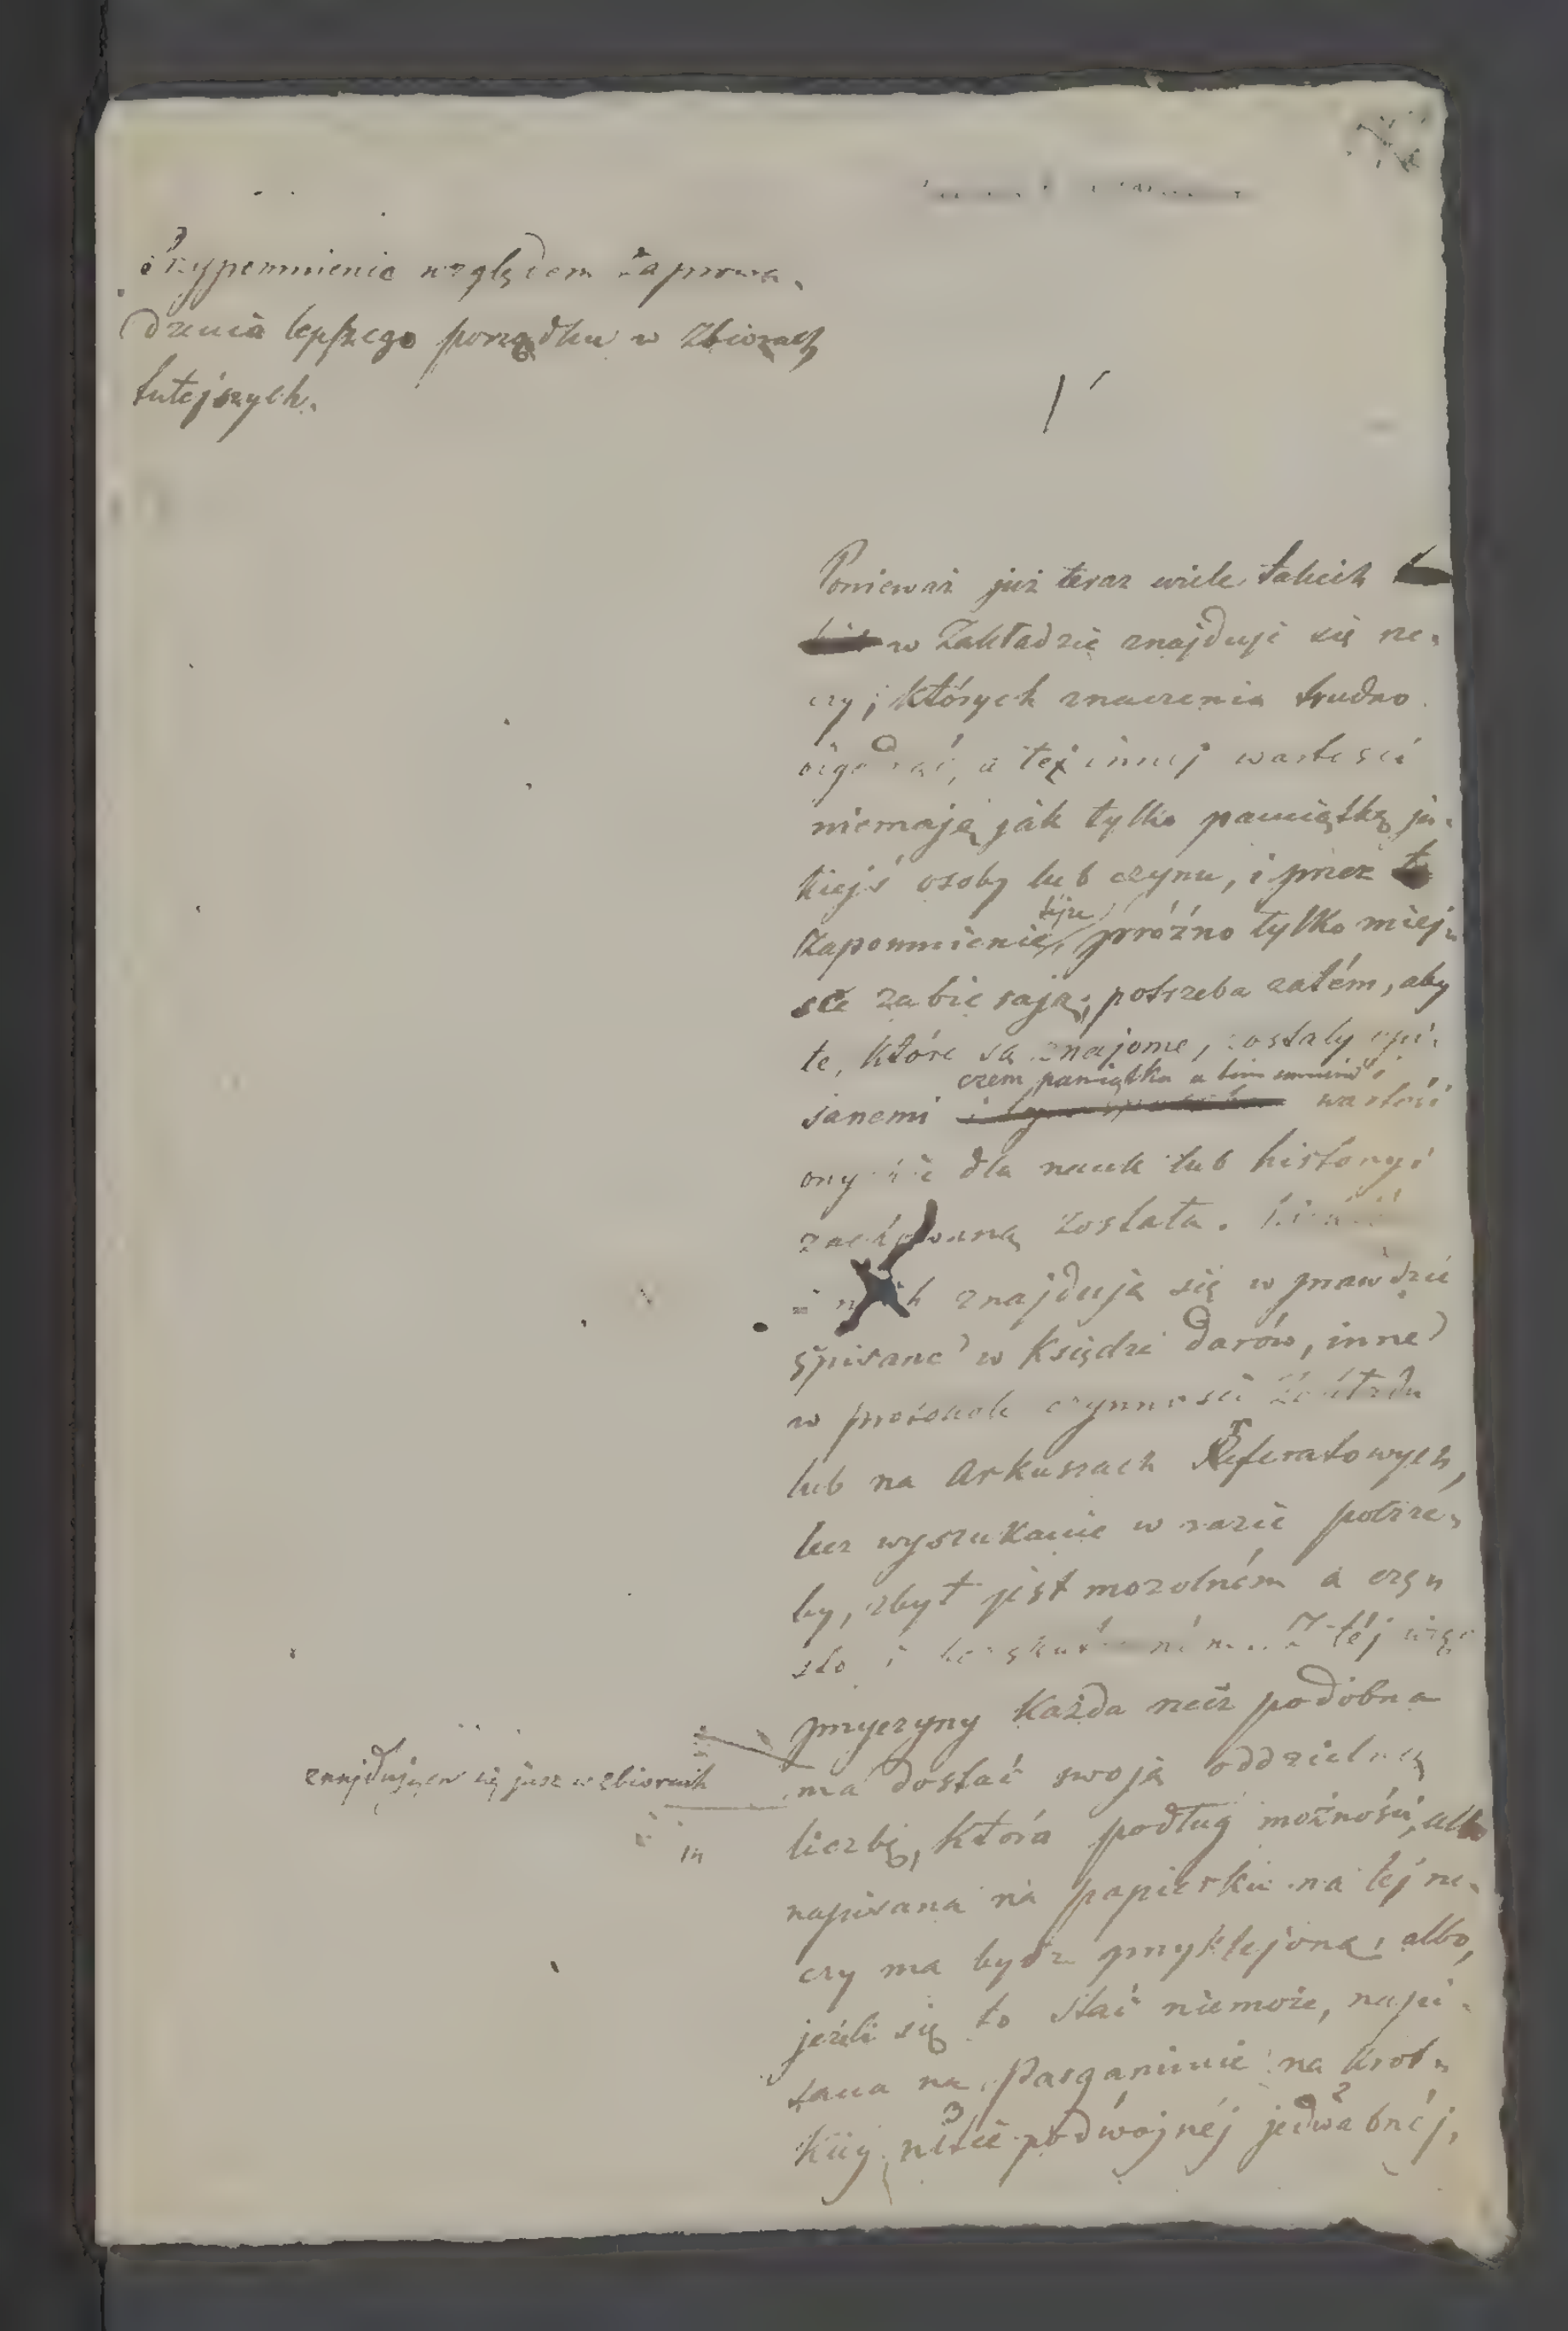 Przypomnienie względem Zaprowa-
dzenia lepszego porządku w Zbiorach
tutejszych.
Ponieważ już teraz wiele takich
w Zakładzie znajduje się rze-
czy, których znaczenia trudno
a też innej wartości
niemają jak tylko pamiątkę ja-
kiejś osoby lub czynu, i przez
tejże
Zapomnienie, próżno tylko miej-
sce zabierają; potrzeba zatém, aby
te, które są znajome, zostały opi-
czem pamiątka a tém
sanemi wartość
dla nauk lub historyi
zachowaną została.
z nich znajdują się w prawdzie
spisane w Księdze darów, inne
w protokole czynności Zakładu
lub na Arkuszach Referatowych,
lecz wyszukanie w razie potrze-
by, zbyt jest mozolném a czę-
sto i Z téj więc
przyczyny Każda rzecz podobna
znajdująca się jusz w zbiorach
ma dostać swoją oddzielną
liczbę, która podług możności, albo
napisana na papierku na téj rze-
czy ma bydz przyklejona, albo,
jeżeli się to stać niemoże, napi-
sana na Pargaminie na krót-
kiéj nitce podwójnéj jedwabnéj,